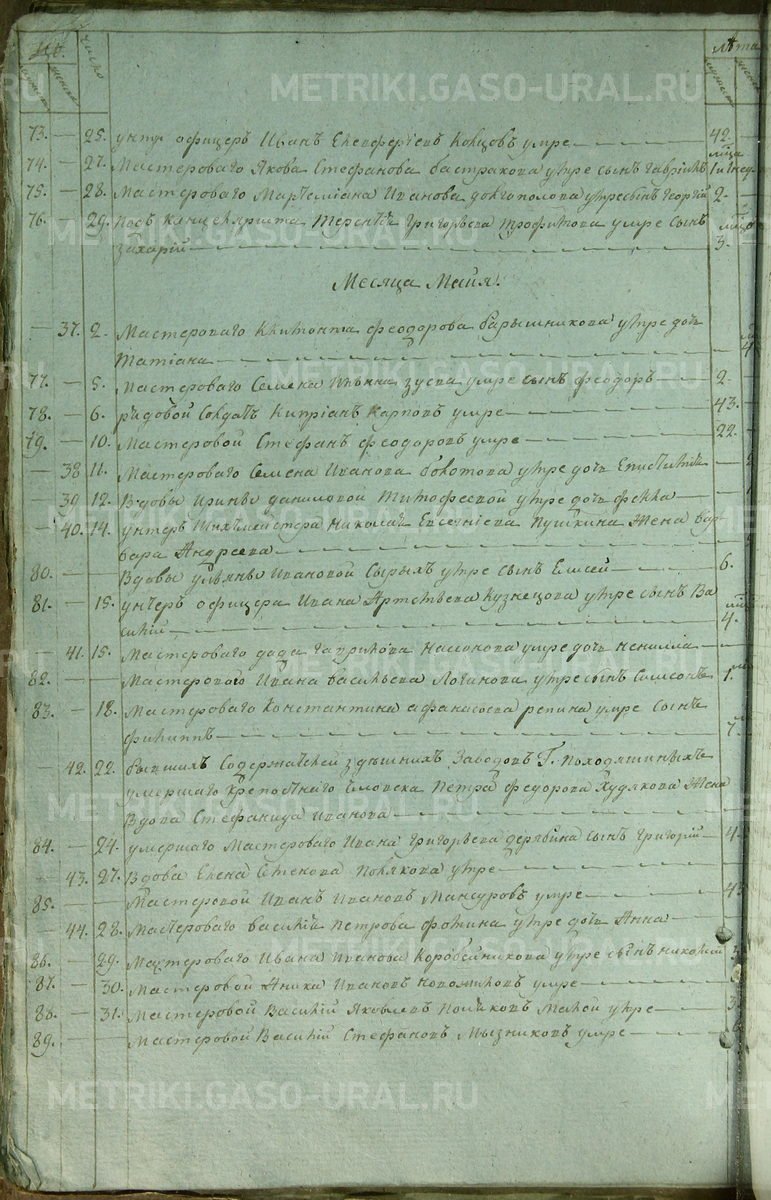 METRIKI.GASO-URAL.RU
число
лѣта
73. — 25. унтр офицеръ Иванъ Елевферїевъ Концовъ умре — 42.
74. — 27. Мастероваго Якова Стефанова бастракова умре сынъ гаврїилъ
75. — 28. Мастероваго Мартемїана Иванова долгополова умре сынъ Георгїй 2
76. — 29. Григорьева Трофимова умре сынъ
захарїй — 3.
Месяца Майя.
— 37. 2. Мастероваго феодорова барышникова умре дочь
татїана —
77. — 5. мастероваго Семена зуева умре сынъ феодоръ — 2
78. — 6. рядовой солдатъ Кипрїанъ Карповъ умре — 43.
79. — 10. Мастеровой Стефанъ феодоровъ умре — 22.
— 38 11. Мастероваго Семена Иванова болотова умре дочь
— 39 12. Вдовы Ирины даниловой Тимофеевой умре дочь фекла —
— 40. 14. унтеръ Шихтмейстера Николая Евсегнїева Пушкина Жена вар
вара Андреева —
80. — Вдовы ульяны Ивановой Сырыхъ умре сынъ Елисей — 6.
81. — 15. унтеръ офицера Ивана Артемьева Кузнецова умре сынъ Ва
силїй — 4.
— 41. 15. Мастероваго гаврилова насонова умре дочь ненилла —
82. — Мастероваго Ивана васильева Логинова умре сынъ Самсонъ 1.
83. — 18. Мастероваго Константина афанасьева репина умре сынъ
филиппъ — 7
— 42. 22. бывшихъ Содержателей здешнихъ Заводовъ Г. Походяшиныхъ
умершаго Крепостнаго человека Петра Федорова Худякова Жена
Вдова Стефанида Иванова —
84. — 24. умершаго Мастероваго Ивана Григорьева дерябина сынъ Григорїй — 4
— 43. 27. Вдова Елена Полякова умре —
85. — Мастеровой Иванъ Ивановъ Мансуровъ умре —
— 44. 28. Мастероваго василїя Петрова фомина умре дочь Анна —
86. — 29. Мастероваго Ивана Иванова Коробейникова умре сынъ николай
87. — 30. Мастеровой Аника Ивановъ умре —
88. — 31. Мастеровой Василїй Яковлевъ Поляковъ Малой умре —
89. — Мастеровой Василїй Стефановъ Мызниковъ умре —